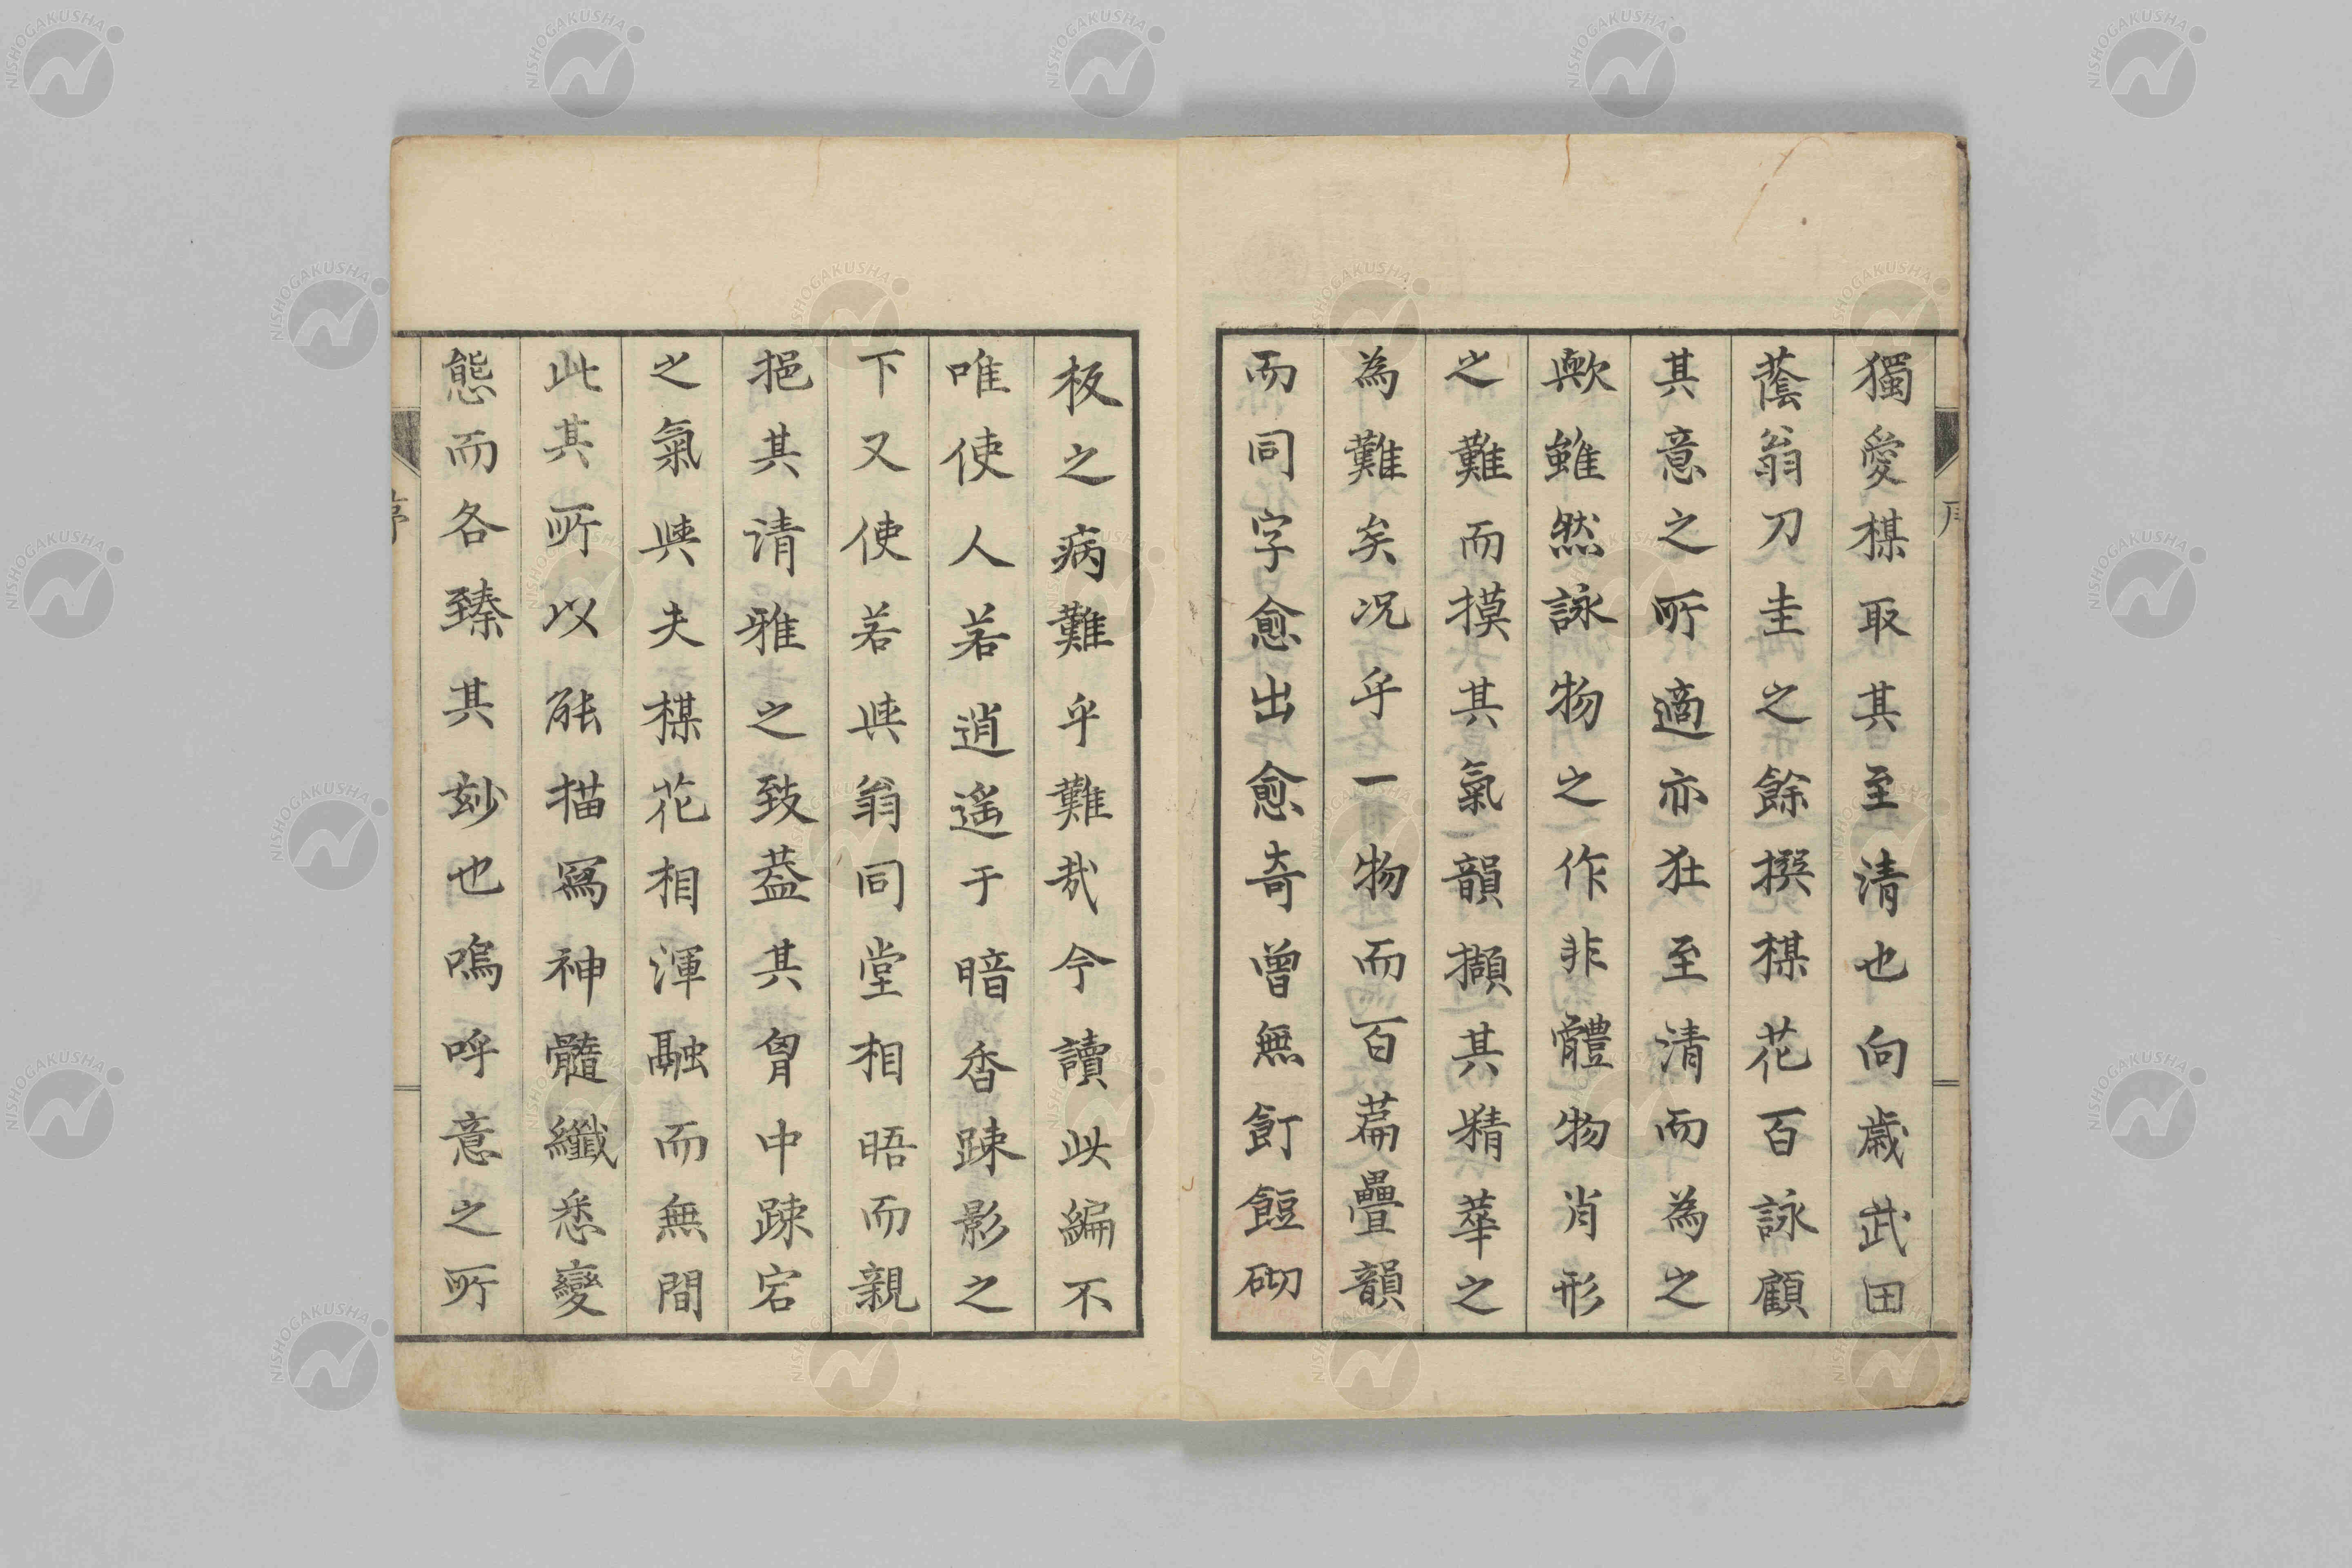 獨愛楳取其至清也向歳武田
蔭翁刀圭之餘撰楳花百詠顧
其意之所適亦在至清而為之
歟雖然詠物之作非體物肖形
之難而摸其氣韻擷其精華之
為難矣况乎一物而百萹疊韻
而同字愈出愈奇曾無飣餖砌
板之病難乎難哉今讀此編不
唯使人若逍遙于暗香踈影之
下又使若與翁同堂相晤而親
挹其清雅之致葢其胷中踈宕
之氣與夫楳花相渾融而無間
此其所以能描寫神髓纖悉變
態而各臻其玅也嗚呼意之所
序
NISHOGAKUSHA